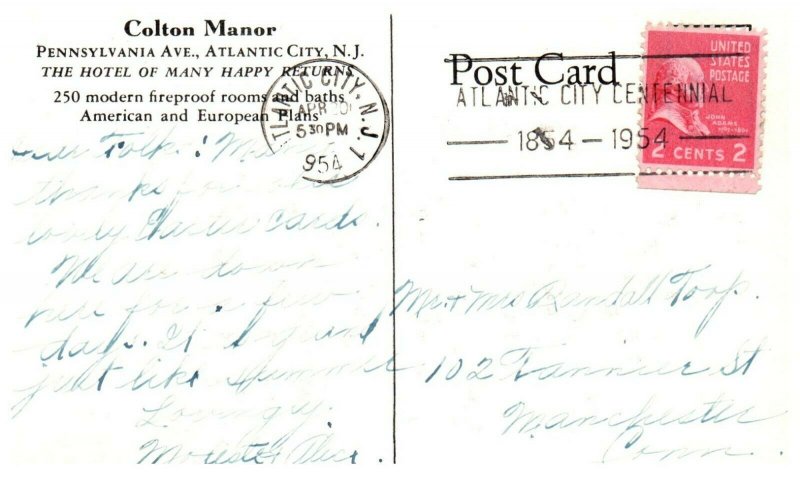 Colton Manor
PENNSYLVANIA AVE., ATLANTIC CITY, N.J.
THE HOTEL OF MANY HAPPY RETURNS
250 modern fireproof rooms and baths
American and European Plans
ATLANTIC CITY, N.J. 1
APR
5 30 PM
1954
Folks: 
thanks for
lovely Easter cards.
We are down
here for a few
days. It is
just like summer
Lovingly.
Post Card
ATLANTIC CITY CENTENNIAL
1854 - 1954
UNITED
STATES
POSTAGE
JOHN
ADAMS
2 CENTS 2
Mr + Mrs Randall Toop.
102 St
Manchester
Conn.